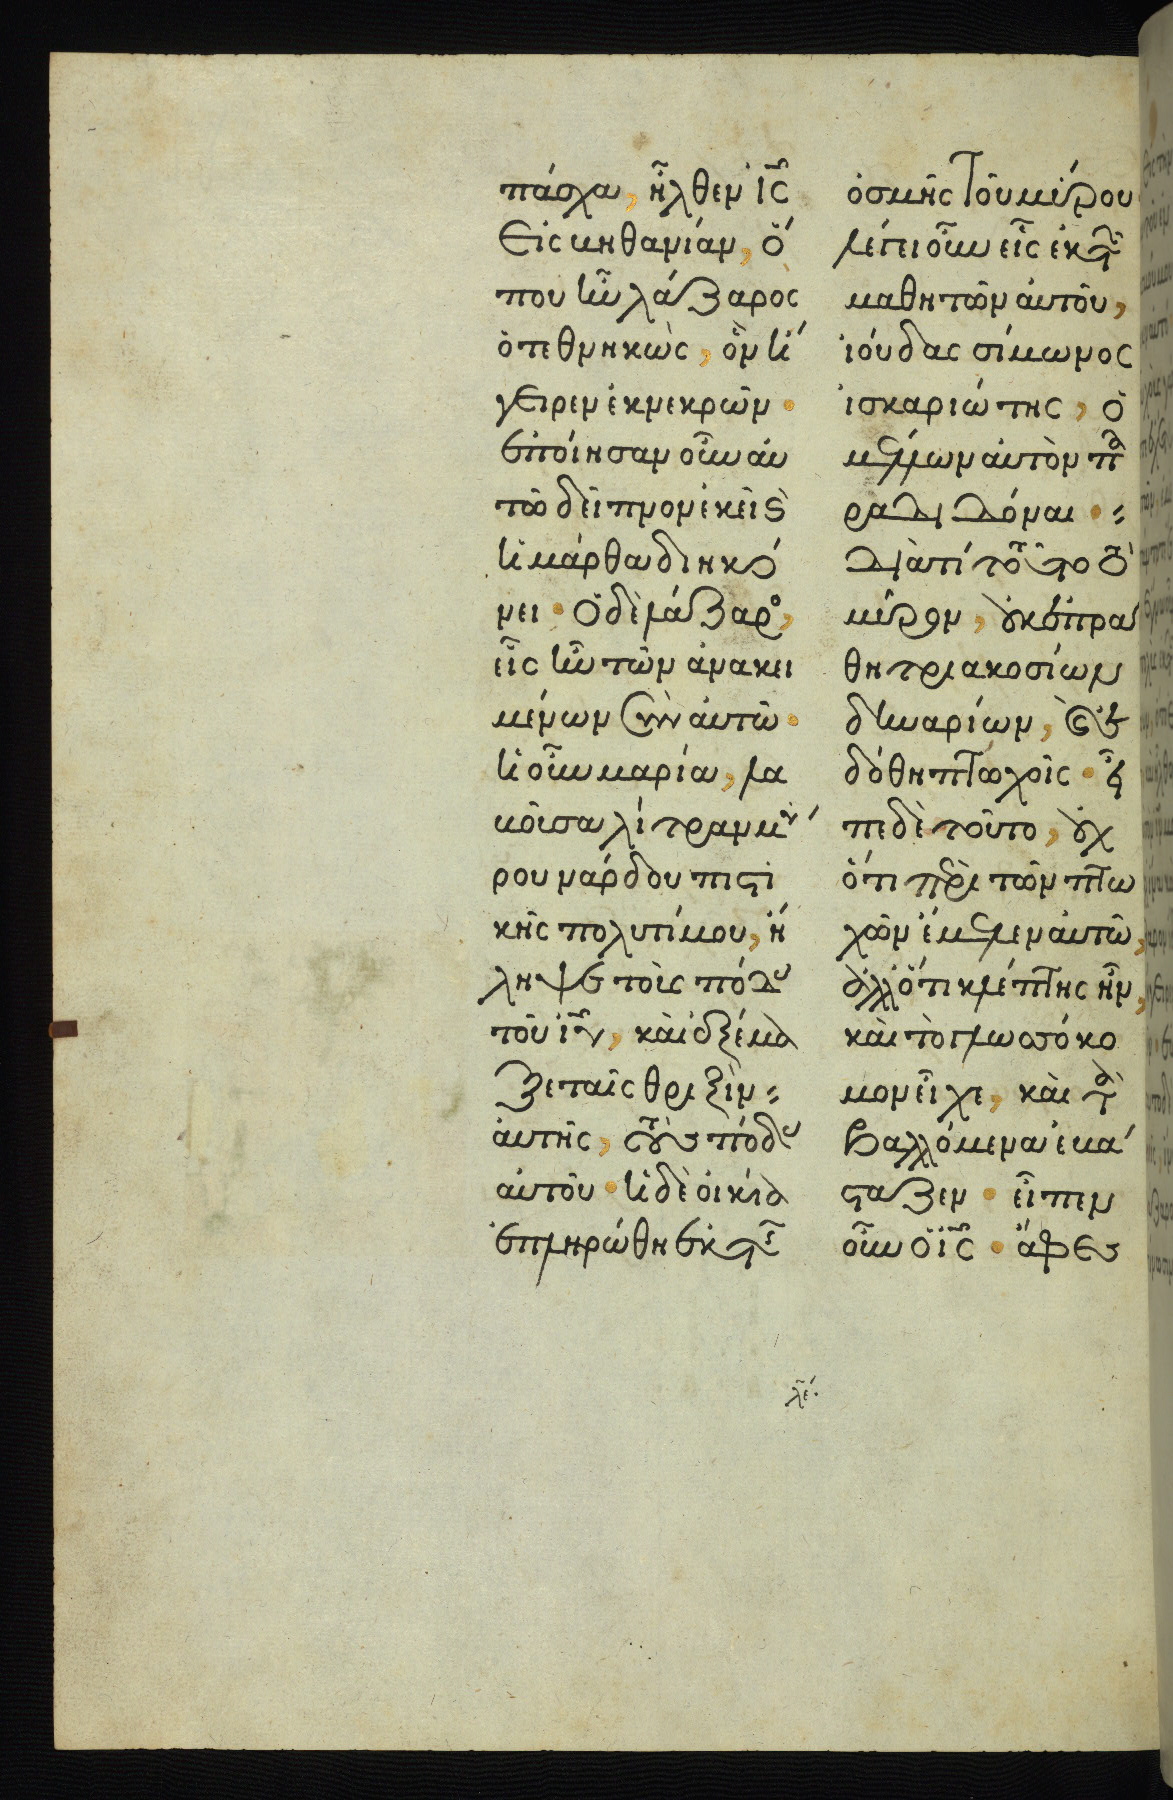 πάσχα, ἦλθεν ἰς̅
εἰς βηθανίαν, ὅ
που ἦν λάζαρος
ὁ τεθνηκὼς, ὃν ἤ
γειρεν ἐκ νεκρῶν.
ἐποίησαν οὖν αὐ
τῶ δεῖπνον ἐκεῖ, ϗ̀
ἡ μάρθα διηκό
νει. ὁ δὲ λάζαρος,
εἷς ἦν τῶν ἀνακει
μένων σὺν αὐτῶ.
ἡ οὖν μαρία, λα
βοῦσα λίτραν μύ
ρου νάρδου πιστι
κῆς πολυτίμου, ἤ
λειψε τοὺς πόδας
τοῦ ἰυ̅, καὶ ἐξέμα
ξε ταῖς θριξὶν
αὐτῆς, τοὺς πόδας
αὐτοῦ. ἡ δὲ οἰκία
ἐπληρώθη ἐκ τῆς
ὀσμῆς τοῦ μύρου
λέγει οὖν εἷς ἐκ τῶν
μαθητῶν αὐτοῦ,
ἰούδας σίμωνος
ἰσκαριώτης, ὁ
μέλλων αὐτὸν πα
ραδιδόναι.
διατί τοῦτο τὸ
μύρον, οὐκ ἐπρά
θη τριακοσίων
δηναρίων, καὶ ἐ
δόθη πτωχοῖς. εἶ
πε δὲ τοῦτο, οὐχ
ὅτι περὶ τῶν πτω
χῶν ἔμελεν αὐτῶ,
ἀλλ' ὅτι κλέπτης ἦν,
καὶ τὸ γλωσσόκο
μον εἶχε, καὶ τὰ
βαλλόμενα ἐβά
σταζεν. εἶπεν
οὖν ὁ ἰς̅. ἄφες
λε̅.